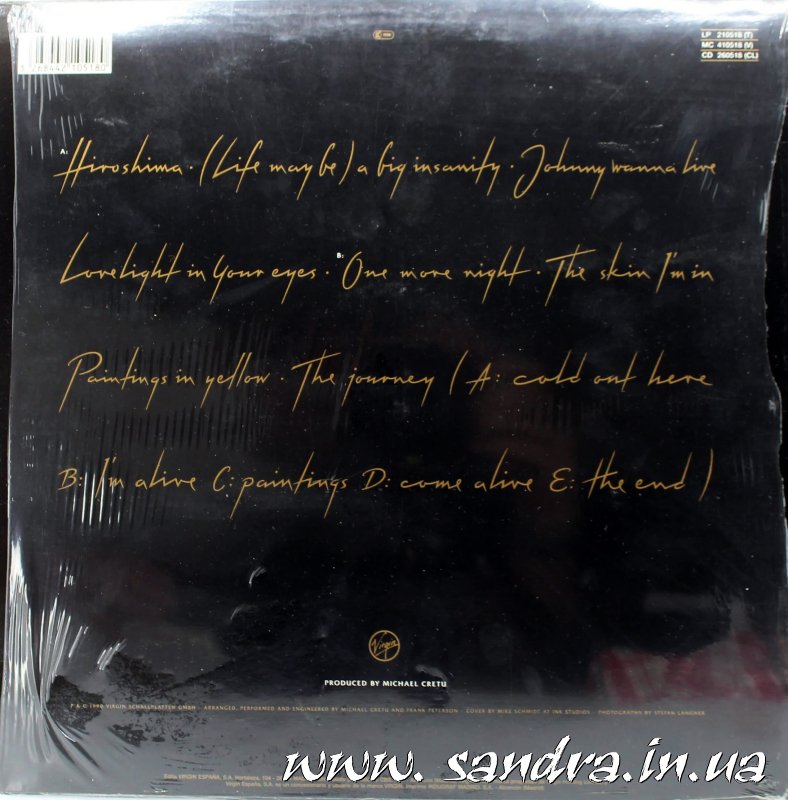 LP 210518 (T)
MC 410518 (V)
CD 260518 (CL)
A:
Hiroshima · (Life may be) a big insanity · Johnny wanna live
Lovelight in your eyes · B: One more night · The skin I'm in
Paintings in yellow · The journey (A: cold out here
B: I'm alive C: paintings D: come alive E: the end)
Virgin
PRODUCED BY MICHAEL CRETU
P & © 1990 VIRGIN SCHALLPLATTEN GMBH · ARRANGED, PERFORMED AND ENGINEERED BY MICHAEL CRETU AND FRANK PETERSON · COVER BY MIKE SCHMIDT AT INK STUDIOS · PHOTOGRAPHY BY STEFAN LANGNER
Edita VIRGIN ESPAÑA, S.A. Hortaleza, 104
www.sandra.in.ua
Virgin España, S.A. es un concesionario y usuario de la marca VIRGIN.